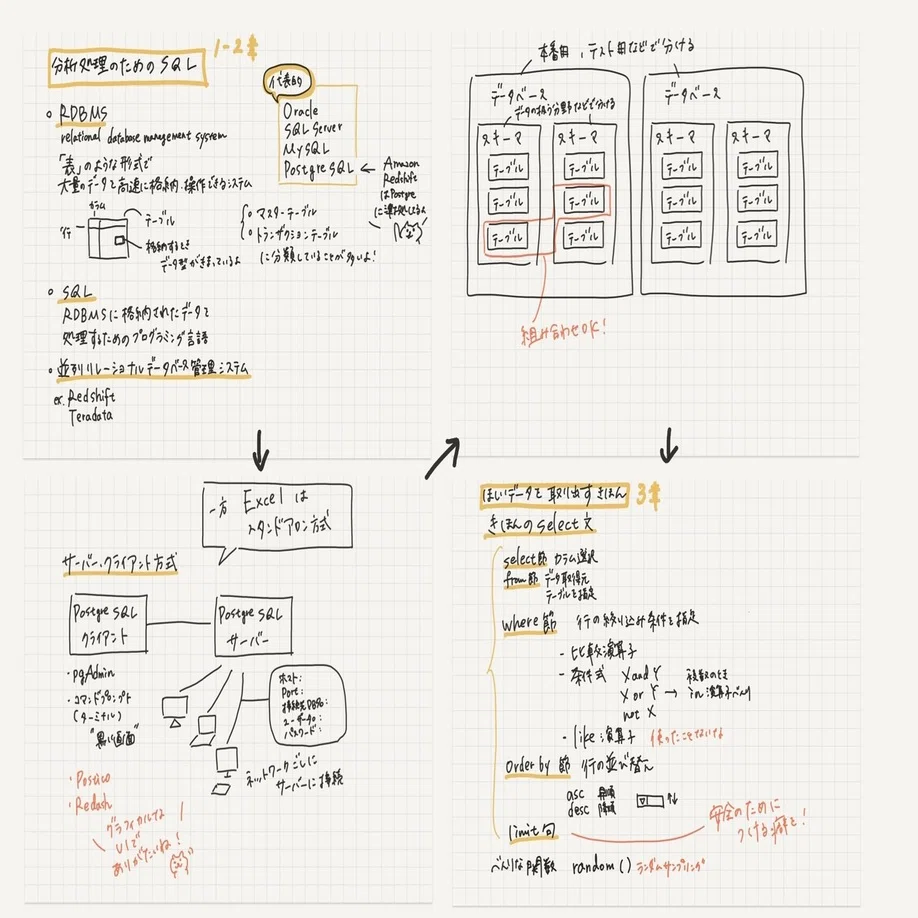 分析処理のためのSQL
1-2章
代表的
Oracle
SQL Server
MySQL
PostgreSQL
Amazon
Redshift
はPostgre
RDBMS
relational database management system
「表」のような形式で
大量のデータを高速に格納・操作できるシステム
カラム
行
テーブル
格納するとき
データ型がきまっているよ
マスターテーブル
トランザクションテーブル
に分類していることが多いよ!
SQL
RDBMSに格納されたデータを
処理するためのプログラミング言語
並列リレーショナルデータベース管理システム
ex. Redshift
Teradata
一方 Excelは
スタンドアロン方式
サーバー・クライアント方式
PostgreSQL
クライアント
PostgreSQL
サーバー
・pgAdmin
・コマンドプロンプト
(ターミナル)
"黒い画面"
・Postico
・Redash
グラフィカルな
UIで
ありがたいね!
ホスト:
Port:
接続先DB名:
ユーザー名:
パスワード:
ネットワークごしに
サーバーに接続
本番用、テスト用などで分ける
データベース
データの扱う分野などで分ける
スキーマ
テーブル
テーブル
テーブル
スキーマ
テーブル
テーブル
テーブル
組み合わせOK!
データベース
スキーマ
テーブル
テーブル
テーブル
スキーマ
テーブル
テーブル
テーブル
ほしいデータを取り出すきほん
3章
きほんのselect文
select節 カラム選択
from節 データ取得元
テーブルを指定
where節 行の絞り込み条件を指定
- 比較演算子
- 条件式 X and Y
X or Y → in演算子べんり
複数のとき
not X
・like演算子 使ったことないな
Order by 節 行の並び替え
asc 昇順
desc 降順
limit句
安全のために
つける癖を!
べんりな関数 random() ランダムサンプリング